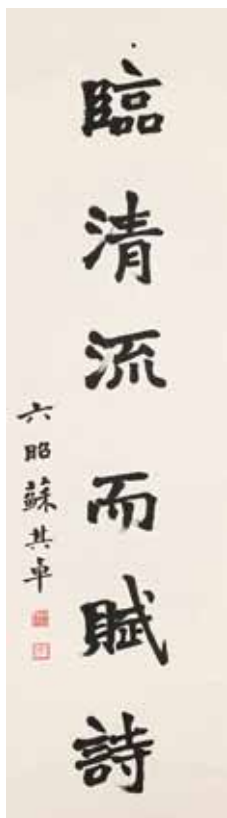 臨清流而賦詩
六昭蘇其車